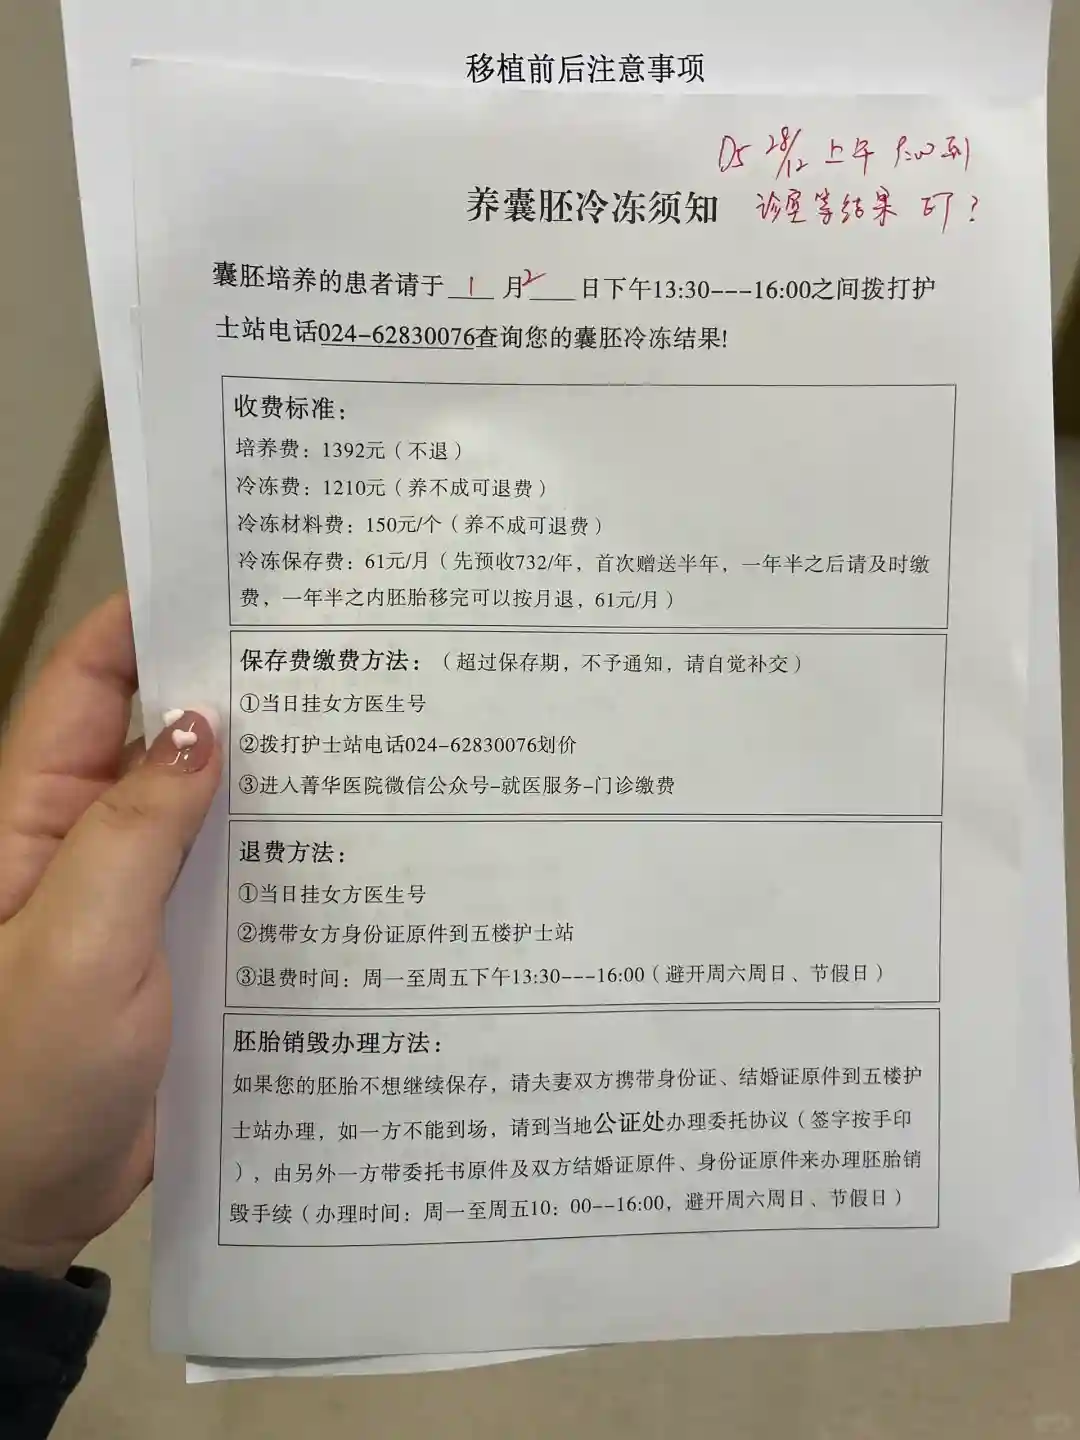 移植前后注意事项
D5 28/12 上午 到
诊室等结果 ET?
养囊胚冷冻须知
囊胚培养的患者请于 1 月 2 日下午13:30---16:00之间拨打护
士站电话024-62830076查询您的囊胚冷冻结果!
收费标准：
培养费：1392元（不退）
冷冻费：1210元（养不成可退费）
冷冻材料费：150元/个（养不成可退费）
冷冻保存费：61元/月（先预收732/年，首次赠送半年，一年半之后请及时缴
费，一年半之内胚胎移完可以按月退，61元/月）
保存费缴费方法：（超过保存期，不予通知，请自觉补交）
①当日挂女方医生号
②拨打护士站电话024-62830076划价
③进入菁华医院微信公众号-就医服务-门诊缴费
退费方法：
①当日挂女方医生号
②携带女方身份证原件到五楼护士站
③退费时间：周一至周五下午13:30---16:00（避开周六周日、节假日）
胚胎销毁办理方法：
如果您的胚胎不想继续保存，请夫妻双方携带身份证、结婚证原件到五楼护
士站办理，如一方不能到场，请到当地公证处办理委托协议（签字按手印
），由另外一方带委托书原件及双方结婚证原件、身份证原件来办理胚胎销
毁手续（办理时间：周一至周五10：00--16:00，避开周六周日、节假日）